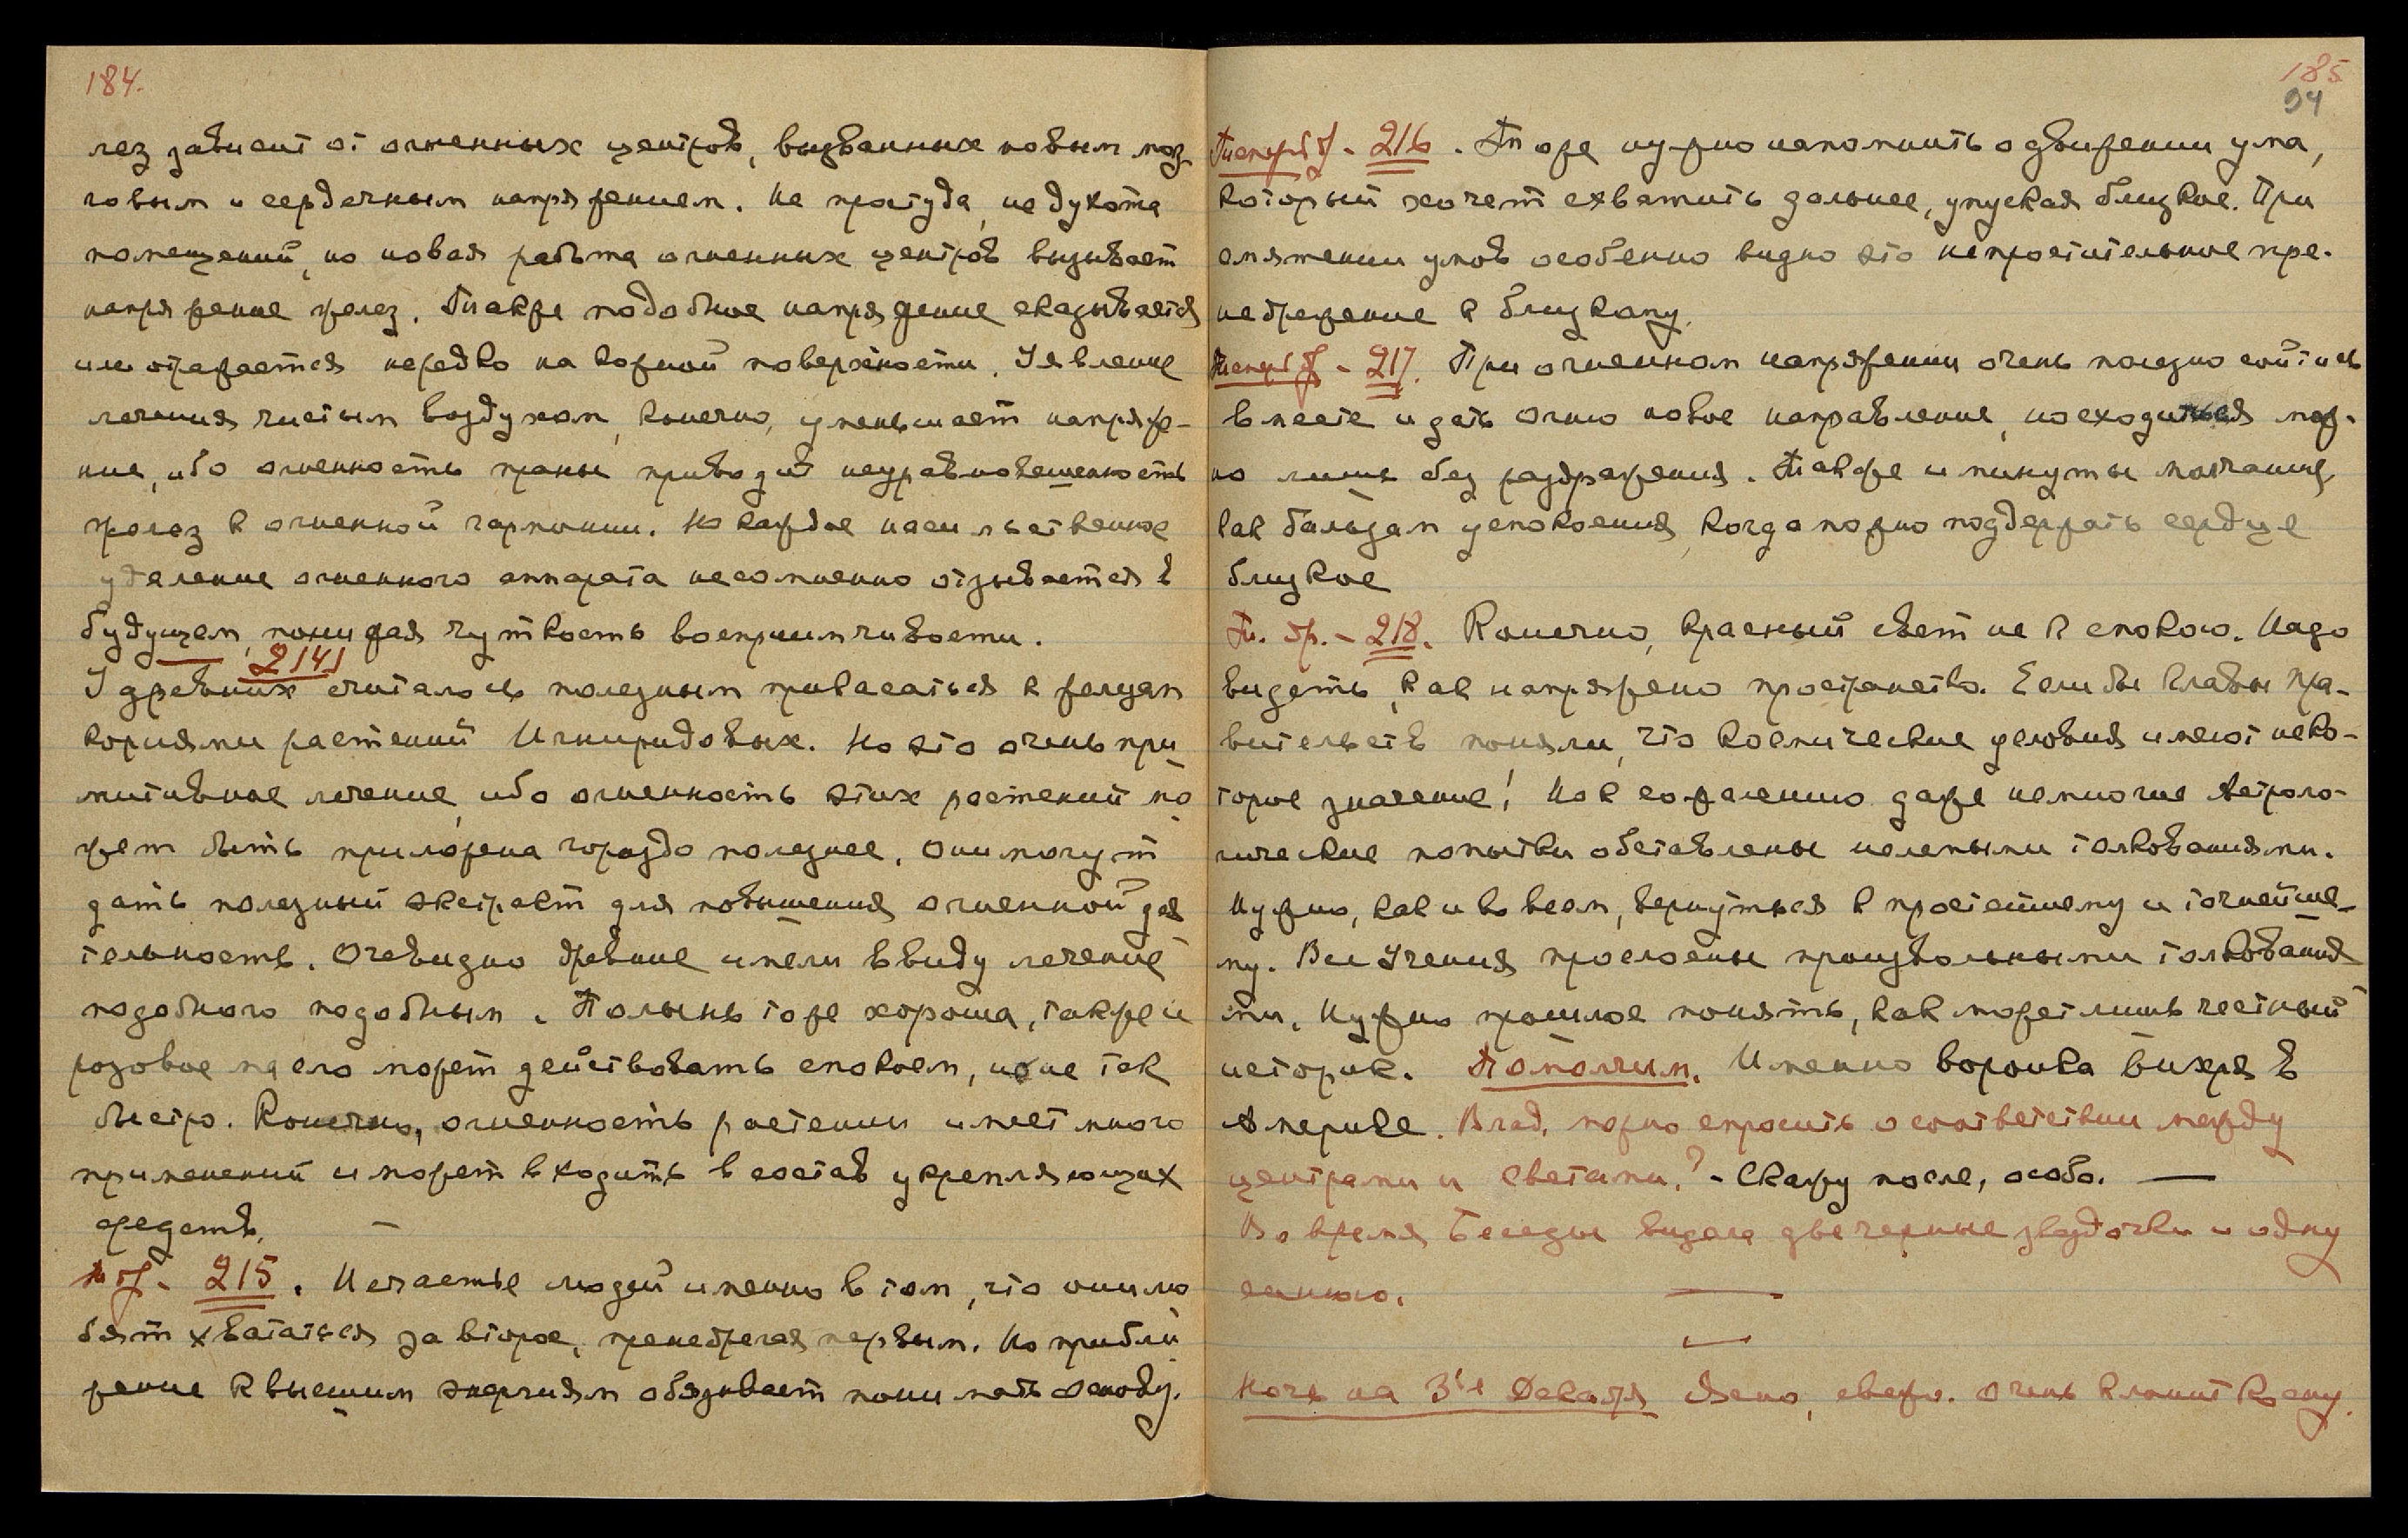 184.
лез зависит от огненных центров, вызванных новым моз-
говым и сердечным напряжением. Не простуда, не духота
помещений, но новая работа огненных центров вызывает
напряжение желез. Также подобное напряжение сказывается
или отражается нередко на кожной поверхности. Уявление
лечения чистым воздухом, конечно, уменьшает напряже-
ние, ибо огненность праны приводит неуравновешенность
желез к огненной гармонии. Но каждое насильственное
удаление огненного аппарата несомненно отзывается в
будущем, понижая чуткость восприимчивости.
214)
У древних считалось полезным прикасаться к железам
корнями растений Игниридовых. Но это очень при
митивное лечение, ибо огненность этих растений мо
жет быть приложена гораздо полезнее. Они могут
дать полезный экстракт для повышения огненной дея
тельность. Очевидно древние имели в виду лечение
подобного подобным. Полынь тоже хороша, также и
розовое масло может действовать спокоем, но не так
быстро. Конечно, огненность растении имеет много
применений и может входить в состав укрепляющих
средств. —
215. Несчастье людей именно в том, что они лю
бят хвататься за второе, пренебрегая первым. Но прибли
жение к высшим энергиям обязывает понимать основу.
185
94
216. Тоже нужно напомнить о движении ума,
который хочет схватить дальнее, упуская близкое. При
смятении умов особенно видно это непростительное пре-
небрежение к близкому.
217. При огненном напряжении очень полезно сойтись
вместе и дать огню новое направление, но сходиться мож-
но лишь без раздражения. Также и минуты молчания,
как бальзам успокоения, когда можно поддержать сердце
близкое
218. Конечно, красный свет не к спокою. Надо
видеть, как напряжено пространство. Если бы главы пра-
вительств поняли, что космические условия имеют неко-
торое значение! Но к сожалению даже немногие Астроло-
гические попытки обставлены нелепыми толкованиями.
Нужно, как и во всем, вернуться к простейшему и точнейше-
му. Все Учения прослоены произвольными толкования
ми. Нужно прошлое понять, как может лишь честный
историк. Помолчим. Именно воронка вихря в
Америке. Влад. можно спросить о соответствии между
центрами и светами? - Скажу после, особо. —
Во время Беседы видела две черные звездочки и одну
синюю. —
—
Ночь на 3ье Декабря Ясно, свежо. Очень клонит ко сну.